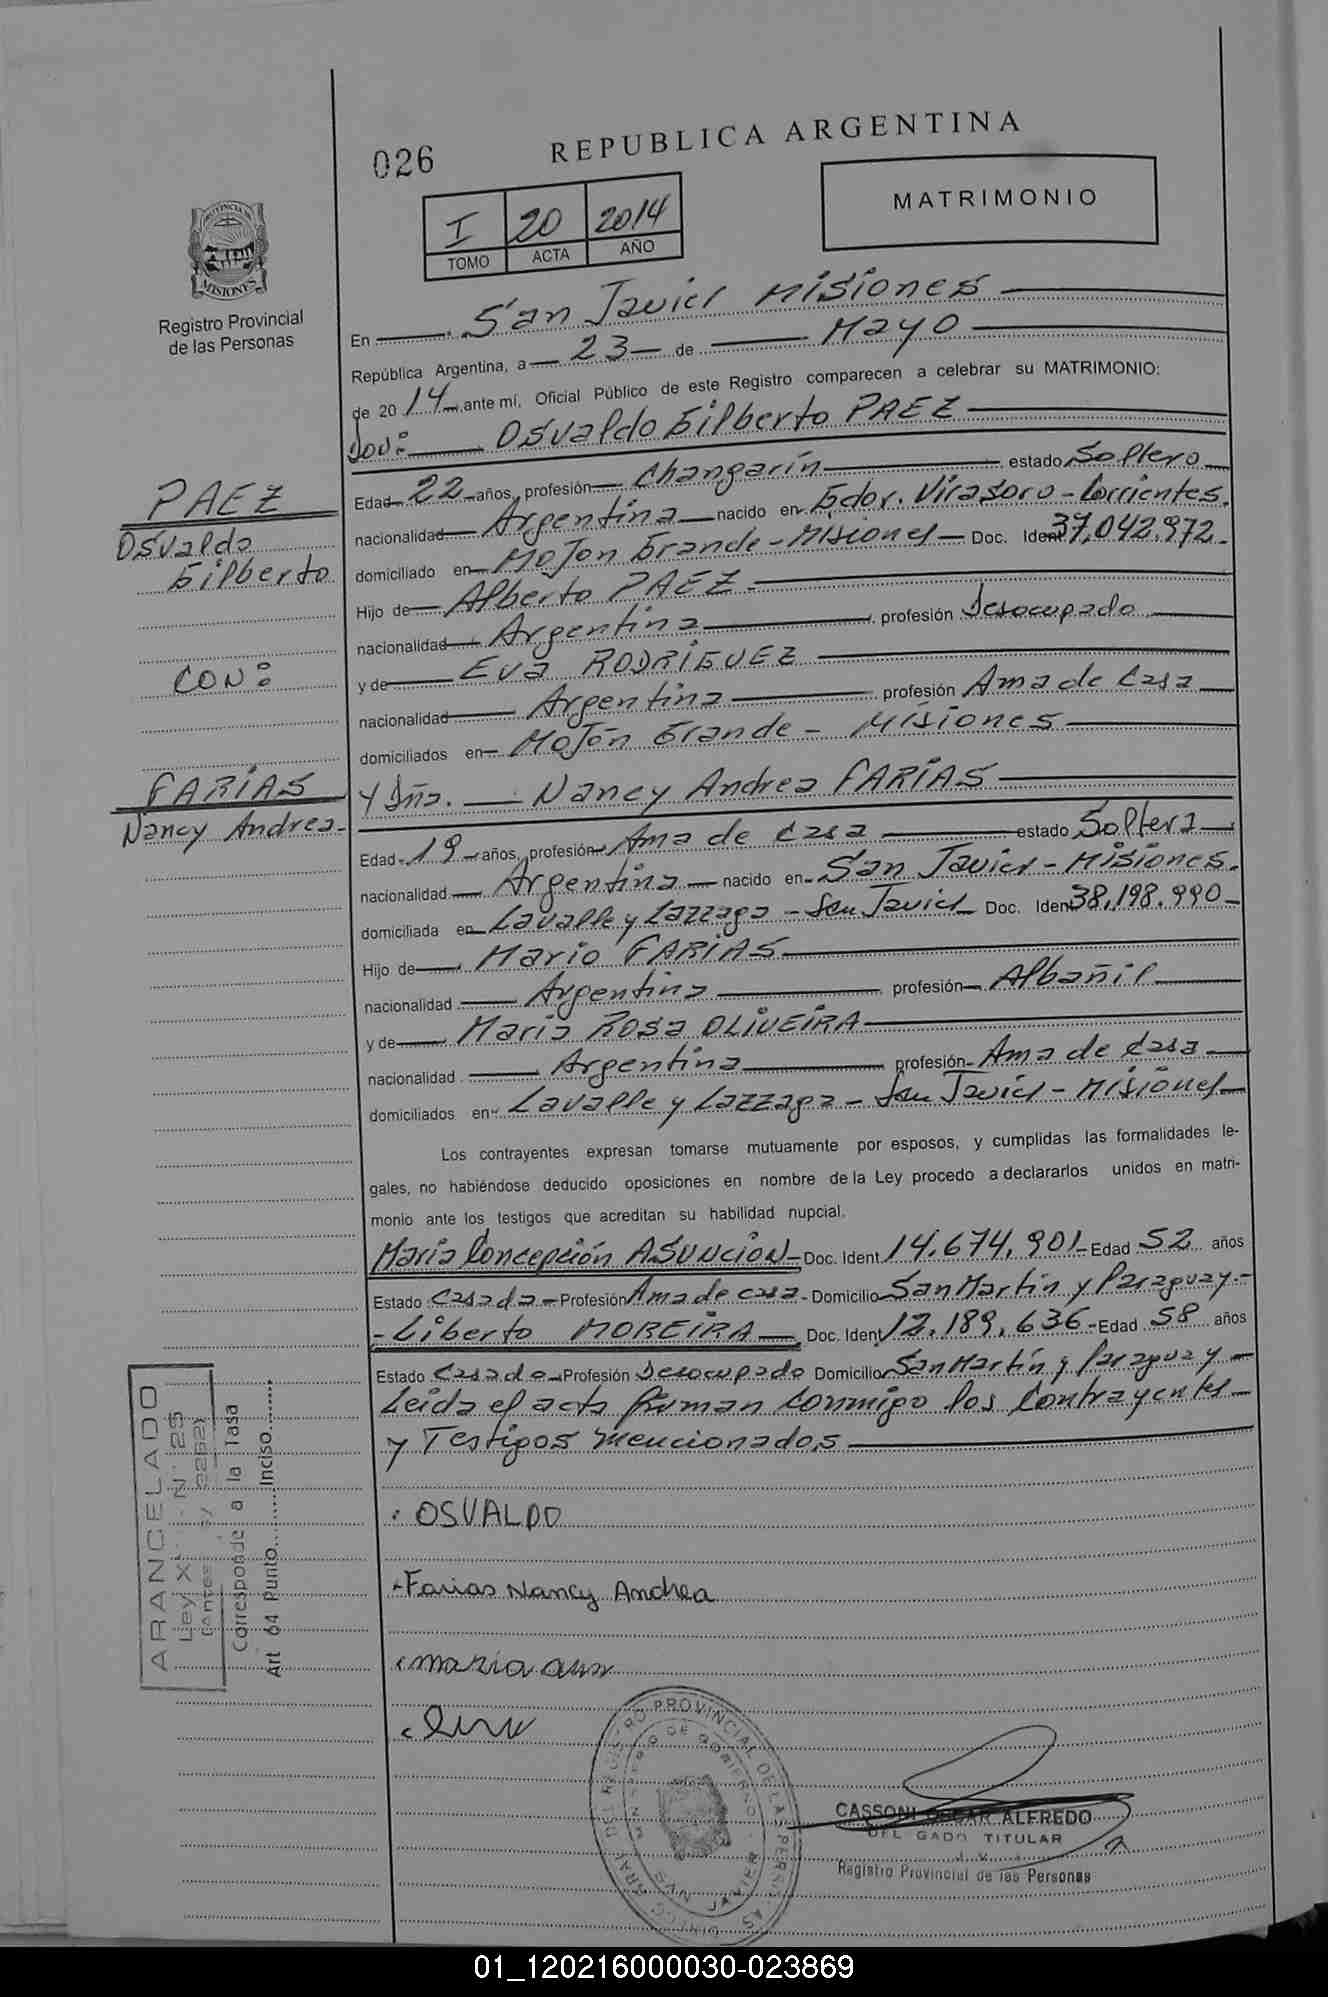 026
REPUBLICA ARGENTINA
I 20 2014
TOMO ACTA AÑO
MATRIMONIO
PROVINCIA DE
MISIONES
Registro Provincial
de las Personas
En San Javier Misiones
República Argentina, a 23 de Mayo
de 2014 ante mí, Oficial Público de este Registro comparecen a celebrar su MATRIMONIO:
Don: Osvaldo Gilberto PAEZ
Edad 22 años, profesión Changarín estado Soltero
nacionalidad Argentina nacido en Gdor. Virasoro - Corrientes.
domiciliado en Mojon Grande - Misiones Doc. Ident 37.042.972.
Hijo de Alberto PAEZ.
nacionalidad Argentina profesión Desocupado
y de EVA RODRIGUEZ
nacionalidad Argentina profesión Ama de Casa
domiciliados en Mojón Grande - Misiones
Y Dña. Nancy Andrea FARIAS
Edad 19 años, profesión Ama de Casa estado Soltera
nacionalidad Argentina nacido en San Javier - Misiones.
domiciliada en Lavalle y Lazzaga - San Javier Doc. Ident 38.198.990
Hijo de Mario FARIAS
nacionalidad Argentina profesión Albañil
y de Maria Rosa OLIVEIRA
nacionalidad Argentina profesión Ama de Casa
domiciliados en Lavalle y Lazzaga - San Javier - Misiones
PAEZ
Osvaldo
Gilberto
CON:
FARIAS
Nancy Andrea
Los contrayentes expresan tomarse mutuamente por esposos, y cumplidas las formalidades le-
gales, no habiéndose deducido oposiciones en nombre de la Ley procedo a declararlos unidos en matri-
monio ante los testigos que acreditan su habilidad nupcial.
Maria Concepción ASUNCION Doc. Ident 14.674.901 Edad 52 años
Estado Casada Profesión Ama de casa Domicilio San Martín y Paraguay.-
- Liberto MOREIRA Doc. Ident 12.189.636 Edad 58 años
Estado Casado Profesión Desocupado Domicilio San Martín y Paraguay
Leida el acta firman conmigo los Contrayentes
y Testigos mencionados
ARANCELADO
Corresponde a la Tasa
Art 64 Punto Inciso
OSVALDO
Farias Nancy Andrea
maria
CASSONI OSCAR ALFREDO
TITULAR
Registro Provincial de las Personas
01_120216000030-023869